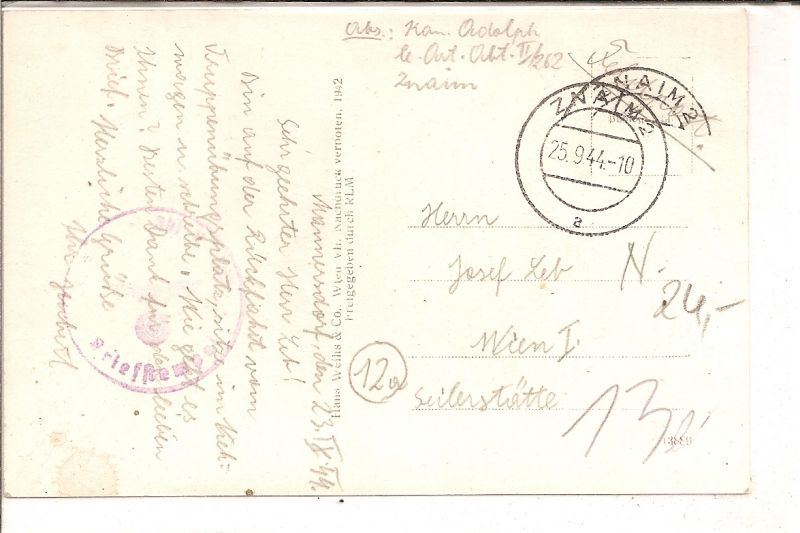 Abs.: Kan. Adolph
le. Art. Abt. II/262
Znaim
ZNAIM 2
ZNAIM 2
25.9.44.-10
a
Herrn
Josef Leb
Wien I.
Seilerstätte
13
12a
N.
24,-
13889
Hans Weihs & Co., Wien VII. Nachdruck verboten, 1942
Freigegeben durch RLM
Mannersdorf, den 23.IX.44.
Sehr geehrter Herr Leb!
Bin auf der Rückfahrt vom
Truppenübungsplatz, sitze im
wagen u. schreibe. Wie geht es
Ihnen? Besten Dank für den lieben
Brief. Herzliche Grüße
Briefstempel